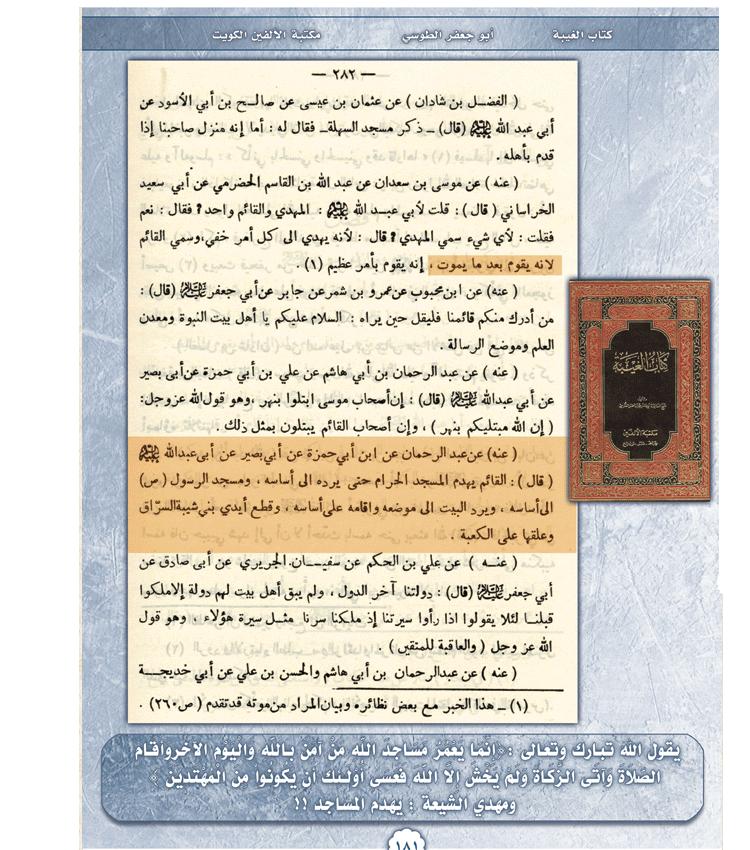 كتاب الغيبة أبو جعفر الطوسي مكتبة الالفين الكويت
— ٢٨٢ —
( الفضل بن شاذان ) عن عثمان بن عيسى عن صالح بن أبي الأسود عن
أبي عبد الله عليه السلام (قال) ـ ذكر مسجد السهلة ـ فقال له : أما إنه منزل صاحبنا إذا
قدم بأهله .
( عنه ) عن موسى بن سعدان عن عبد الله بن القاسم الحضرمي عن أبي سعيد
الخراساني ( قال ) : قلت لأبي عبد الله عليه السلام : المهدي والقائم واحد ؟ فقال : نعم
فقلت : لأي شيء سمي المهدي ؟ قال : لأنه يهدي الى كل أمر خفي، وسمي القائم
لانه يقوم بعد ما يموت ، إنه يقوم بأمر عظيم (١) .
( عنه) عن ابن محبوب عن عمرو بن شمر عن جابر عن أبي جعفر عليه السلام (قال) :
من أدرك منكم قائمنا فليقل حين يراه : السلام عليكم يا أهل بيت النبوة ومعدن
العلم وموضع الرسالة .
( عنه ) عن عبد الرحمان بن أبي هاشم عن علي بن أبي حمزة عن أبى بصير
عن أبي عبدالله عليه السلام (قال) : إن أصحاب موسى ابتلوا بنهر ، وهو قول الله عز وجل :
( إن الله مبتليكم بنهر ) ، وإن أصحاب القائم يبتلون بمثل ذلك .
(عنه) عن عبد الرحمان عن ابن أبي حمزة عن أبي بصير عن أبى عبدالله عليه السلام
( قال ) : القائم يهدم المسجد الحرام حتى يرده الى أساسه ، ومسجد الرسول (ص)
الى أساسه ، ويرد البيت الى موضعه واقامه على أساسه ، وقطع أيدي بني شيبة السرّاق
وعلقها على الكعبة .
( عنه ) عن علي بن الحكم عن سفيان الجريري عن أبى صادق عن
أبي جعفر عليه السلام (قال) : دولتنا آخر الدول ، ولم يبق أهل بيت لهم دولة إلا ملكوا
قبلنا لئلا يقولوا اذا رأوا سيرتنا إذ ملكنا سرنا مثل سيرة هؤلاء ، وهو قول
الله عز وجل ( والعاقبة للمتقين ) .
( عنه ) عن عبدالرحمان بن أبي هاشم والحسن بن علي عن أبي خديجة
(١) ـ هذا الخبر مع بعض نظائره وبيان المراد من موته قد تقدم ( ص ٢٦٠) .
كتاب الغيبة
مكتبة الألفين
يقول الله تبارك وتعالى : ﴿ إنما يَعْمُرُ مساجد الله مَنْ آمن بالله واليوم الآخر وأقام
الصلاة وآتى الزكاة ولم يخش إلا الله فعسى أولئك أن يكونوا من المهتدين ﴾
ومهدي الشيعة : يهدم المساجد !!
١٨١